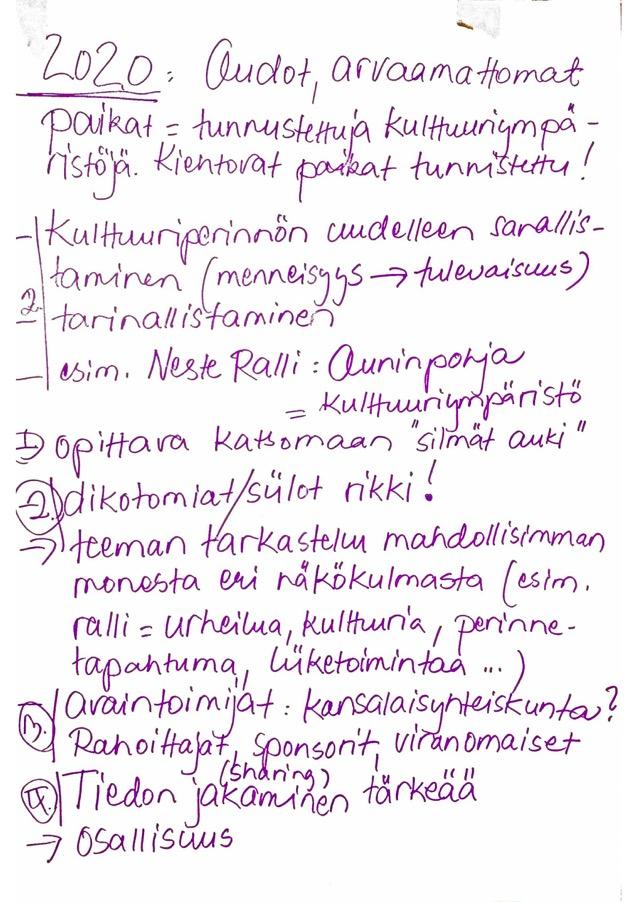 2020: Oudot, arvaamattomat
paikat = tunnustettuja kulttuuriympä-
ristöjä. Kientovat paikat tunnistettu!
- Kulttuuriperinnön uudelleen sanallis-
taminen (menneisyys → tulevaisuus)
2. - tarinallistaminen
- esim. Neste Ralli: Ouninpohja
= kulttuuriympäristö
1) opittava katsomaan "silmät auki"
2. dikotomiat/siilot rikki!
→ teeman tarkastelu mahdollisimman
monesta eri näkökulmasta (esim.
ralli = urheilua, kulttuuria, perinne-
tapahtuma, liiketoimintaa ...)
3. Avaintoimijat: kansalaisyhteiskunta?
Rahoittajat, sponsorit, viranomaiset
(sharing)
4. Tiedon jakaminen tärkeää
→ osallisuus